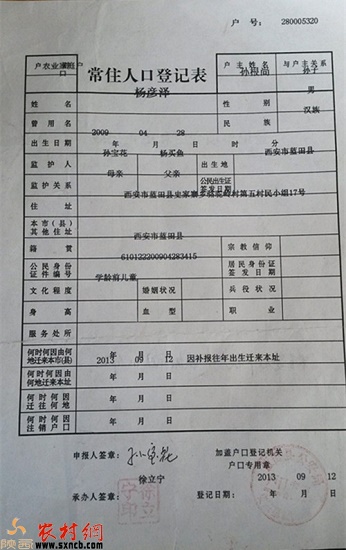 户 号: 280005320
户农业家庭户口
常住人口登记表
户主姓名 孙根尚
与户主关系 孙子
姓名 杨彦泽
性别 男
曾用名
民族 汉族
出生日期 2009年04月28日 时 分
监护人 孙宝花 杨买鱼
出生地 西安市蓝田县
监护关系 母亲 父亲
公民出生证签发日期
住址 西安市蓝田县史家寨乡 村第五村民小组17号
本市(县)其他住址
籍贯 西安市蓝田县
宗教信仰
公民身份证件编号 610122200904283415
居民身份证签发日期
文化程度 学龄前儿童
婚姻状况
兵役状况
身高
血型
职业
服务处所
何时何因由何地迁来本市(县) 年 月 日
何时何因由何地迁来本址 2013年09月12日 因补报往年出生迁来本址
何时何因迁往何地 年 月 日
何时何因注销户口 年 月 日
申报人签章: 孙宝花
加盖户口登记机关户口专用章
承办人签章: 徐立宁
登记日期: 2013年09月12日
陕西 农村網
www.sxncb.com